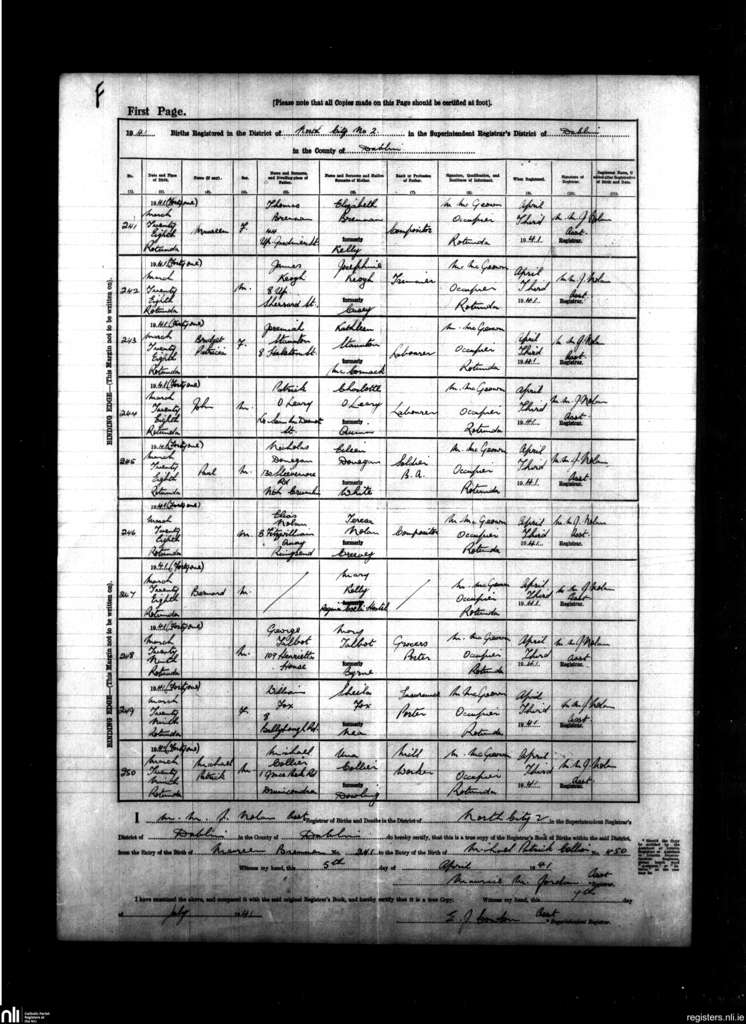 F
[Please note that all Copies made on this Page should be certified at foot].
First Page.
1941 Births Registered in the District of North City No 2 in the Superintendent Registrar's District of Dublin
in the County of Dublin
No. Date and Place of Birth. Name (if any). Sex. Name and Surname and Dwelling-place of Father. Name and Surname and Maiden Surname of Mother. Rank or Profession of Father. Signature, Qualification, and Residence of Informant. When Registered. Signature of Registrar.
(1). (2). (3). (4). (5). (6). (7). (8). (9). (10). (11).
241 1941 (Forty one) March Twenty Eighth Rotunda Maureen F. Thomas Brennan 44 Elizabeth Brennan formerly Kelly Compositor M. McGeown Occupier Rotunda April Third 1941. M. M. J. Nolan Asst. Registrar.
242 1941 (Forty one) March Twenty Eighth Rotunda M. James Keogh 8 Up. Sherrard St. Josephine Keogh formerly Casey M. McGeown Occupier Rotunda April Third 1941. M. M. J. Nolan Asst. Registrar.
243 1941 (Forty one) March Twenty Eighth Rotunda Bridget Patricia F. Jeremiah Staunton 8 Kathleen Staunton formerly McCormack Labourer M. McGeown Occupier Rotunda April Third 1941. M. M. J. Nolan Asst. Registrar.
244 1941 (Forty one) March Twenty Eighth Rotunda John M. Patrick O'Leary St. Charlotte O'Leary formerly Quinn Labourer M. McGeown Occupier Rotunda April Third 1941. M. M. J. Nolan Asst. Registrar.
245 1941 (Forty one) March Twenty Eighth Rotunda Paul M. Nicholas Donegan Rd Nth Crumlin Eileen Donegan formerly White Soldier B.A. M. McGeown Occupier Rotunda April Third 1941. M. M. J. Nolan Asst. Registrar.
246 1941 (Forty one) March Twenty Eighth Rotunda M. Nolan Fitzwilliam Quay Ringsend Teresa Nolan formerly Creevey Compositor M. McGeown Occupier Rotunda April Third 1941. M. M. J. Nolan Asst. Registrar.
247 1941 (Forty one) March Twenty Eighth Rotunda Bernard M. / Mary Kelly Regina Hostel / M. McGeown Occupier Rotunda April Third 1941. M. M. J. Nolan Asst. Registrar.
248 1941 (Forty one) March Twenty Ninth Rotunda M. George Talbot 109 Henrietta House Mary Talbot formerly Byrne Grocers Porter M. McGeown Occupier Rotunda April Third 1941. M. M. J. Nolan Asst. Registrar.
249 1941 (Forty one) March Twenty Ninth Rotunda F. William Fox 8 Ballybough Rd. Sheila Fox formerly Porter M. McGeown Occupier Rotunda April Third 1941 M. M. J. Nolan Asst. Registrar.
250 1941 (Forty one) March Twenty Ninth Rotunda Michael Patrick M. Michael Collier 1 Grace Park Rd Drumcondra Una Collier formerly Dowling Mill Worker M. McGeown Occupier Rotunda April Third 1941. M. M. J. Nolan Asst. Registrar.
BINDING EDGE—(This Margin not to be written on).
BINDING EDGE—(This Margin not to be written on).
I M. M. J. Nolan Asst Registrar of Births and Deaths in the District of North City 2 in the Superintendent Registrar's
District of Dublin in the County of Dublin do hereby certify, that this is a true copy of the Registrar's Book of Births within the said District,
from the Entry of the Birth of Maureen Brennan No. 241 to the Entry of the Birth of Michael Patrick Collier No. 250
Witness my hand, this 5th day of April 1941
Asst Registrar.
I have examined the above, and compared it with the said original Registrar's Book, and hereby certify that it is a true Copy. Witness my hand, this 7th day
of July 1941
Asst Superintendent Registrar.
nli
Catholic Parish
Registers at
the NLI
registers.nli.ie